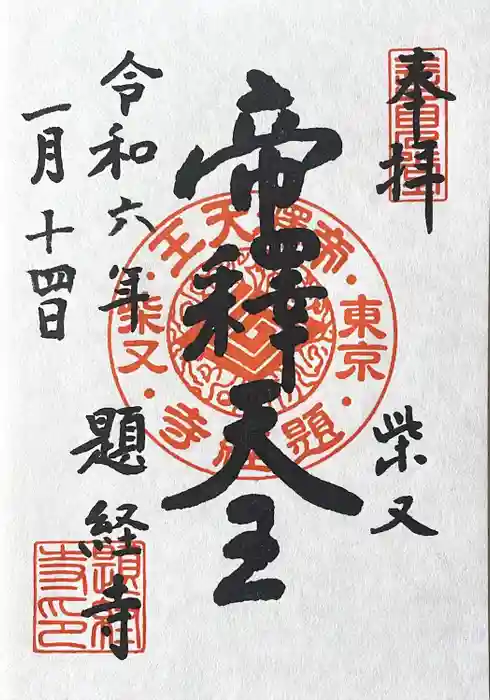 奉拝
柴又
帝釋天王
令和六年
一月十四日
題経寺
帝釋天王
東京
柴又
題経寺
題経寺印